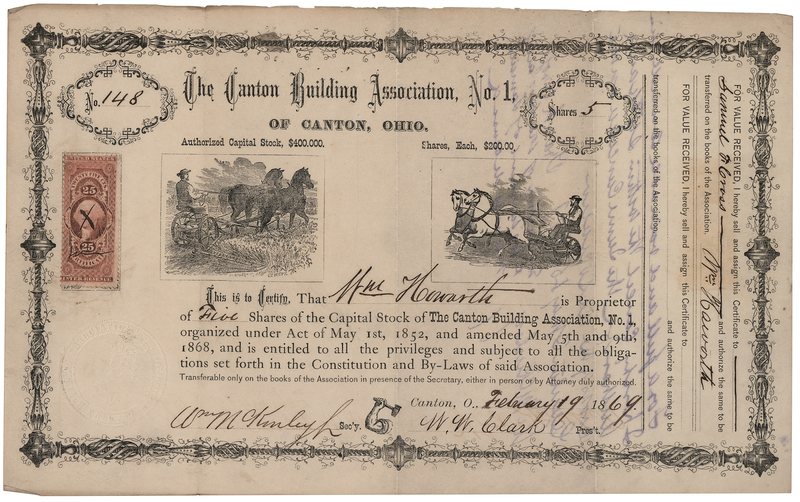 No. 148
The Canton Building Association, No. 1,
Shares 5
OF CANTON, OHIO.
Authorized Capital Stock, $400.000.
Shares, Each, $200.00.
25
25
X
INTER. REVENUE
This is to Certify, That Wm Howorth is Proprietor
of Five Shares of the Capital Stock of The Canton Building Association, No. 1,
organized under Act of May 1st, 1852, and amended May 5th and 9th,
1868, and is entitled to all the privileges and subject to all the obliga-
tions set forth in the Constitution and By-Laws of said Association.
Transferable only on the books of the Association in presence of the Secretary, either in person or by Attorney duly authorized.
Canton, O., February 19 1869.
Wm McKinley Jr Sec'y.
W. W. Clark Pres't.
FOR VALUE RECEIVED, I hereby sell and assign this Certificate to
Samuel and authorize the same to be
transferred on the books of the Association. Wm Haworth
FOR VALUE RECEIVED, I hereby sell and assign this Certificate to
and authorize the same to be
transferred on the books of the Association.